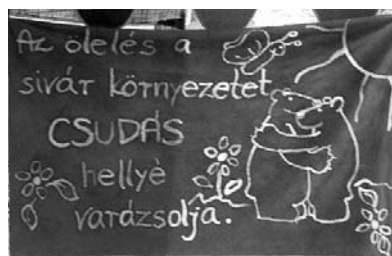 Az ölelés a
sivár környezetet
CSUDÁS
hellyé
varázsolja.